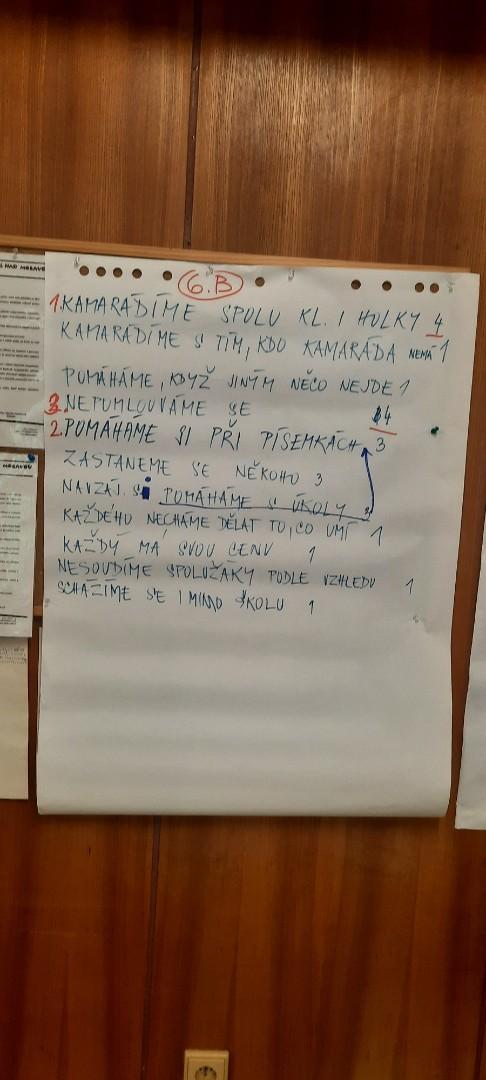 6.B
1. KAMARÁDÍME SPOLU KL. I HOLKY 4
KAMARÁDÍME S TÍM, KDO KAMARÁDA NEMÁ 1
POMÁHÁME, KDYŽ JINÝM NĚCO NEJDE 1
3. NEPOMLOUVÁME SE 4
2. POMÁHÁME SI PŘI PÍSEMKÁCH 3
ZASTANEME SE NĚKOHO 3
NAVZÁJ. SI POMÁHÁME S ÚKOLY
KAŽDÉHO NECHÁME DĚLAT TO, CO UMÍ 1
KAŽDÝ MÁ SVOU CENU 1
NESOUDÍME SPOLUŽÁKY PODLE VZHLEDU 1
SCHÁZÍME SE I MIMO ŠKOLU 1
NAD MORAVOU